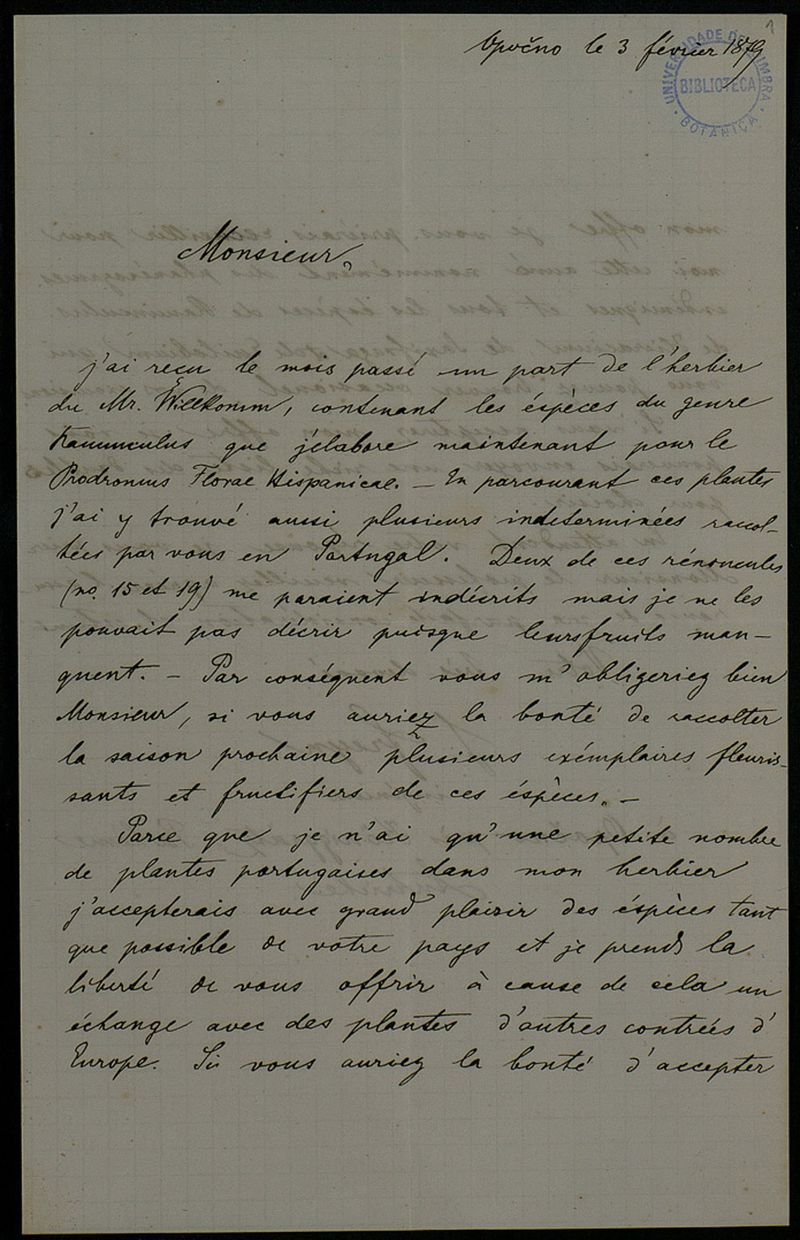 1
Opočno le 3 février 1879
UNIVERSIDADE DE COIMBRA
BIBLIOTECA
BOTANICA
Monsieur,
j'ai reçu le mois passé un part de l'herbier
du Mr. Willkomm, contenant les éspèces du genre
Ranunculus que j'élabore maintenant pour le
Prodromus Florae Hispanicae. — En parcourant ces plantes
j'ai y trouvé aussi plusieurs indeterminées raccol-
tées par vous en Portugal. Deux de ces rénoncules
(no. 15 et 19) me paraient indécrits mais je ne les
pouvait pas décrir puisque leurs fruits man-
quent. — Par conséquent vous m'obligeriez bien
Monsieur, si vous auriez la bonté de raccolter
la saison prochaine plusieurs exémplaires fleuris-
sants et fructifiers de ces éspèces. —
Parce que je n'ai qu'une petite nombre
de plantes portugaises dans mon herbier
j'accepterais avec grand plaizir des éspèces tant
que possible de votre pays et je prends la
liberté de vous offrir à cause de cela un
échange avec des plantes d'autres contreés d'
Europe. Si vous auriez la bonté d'accepter